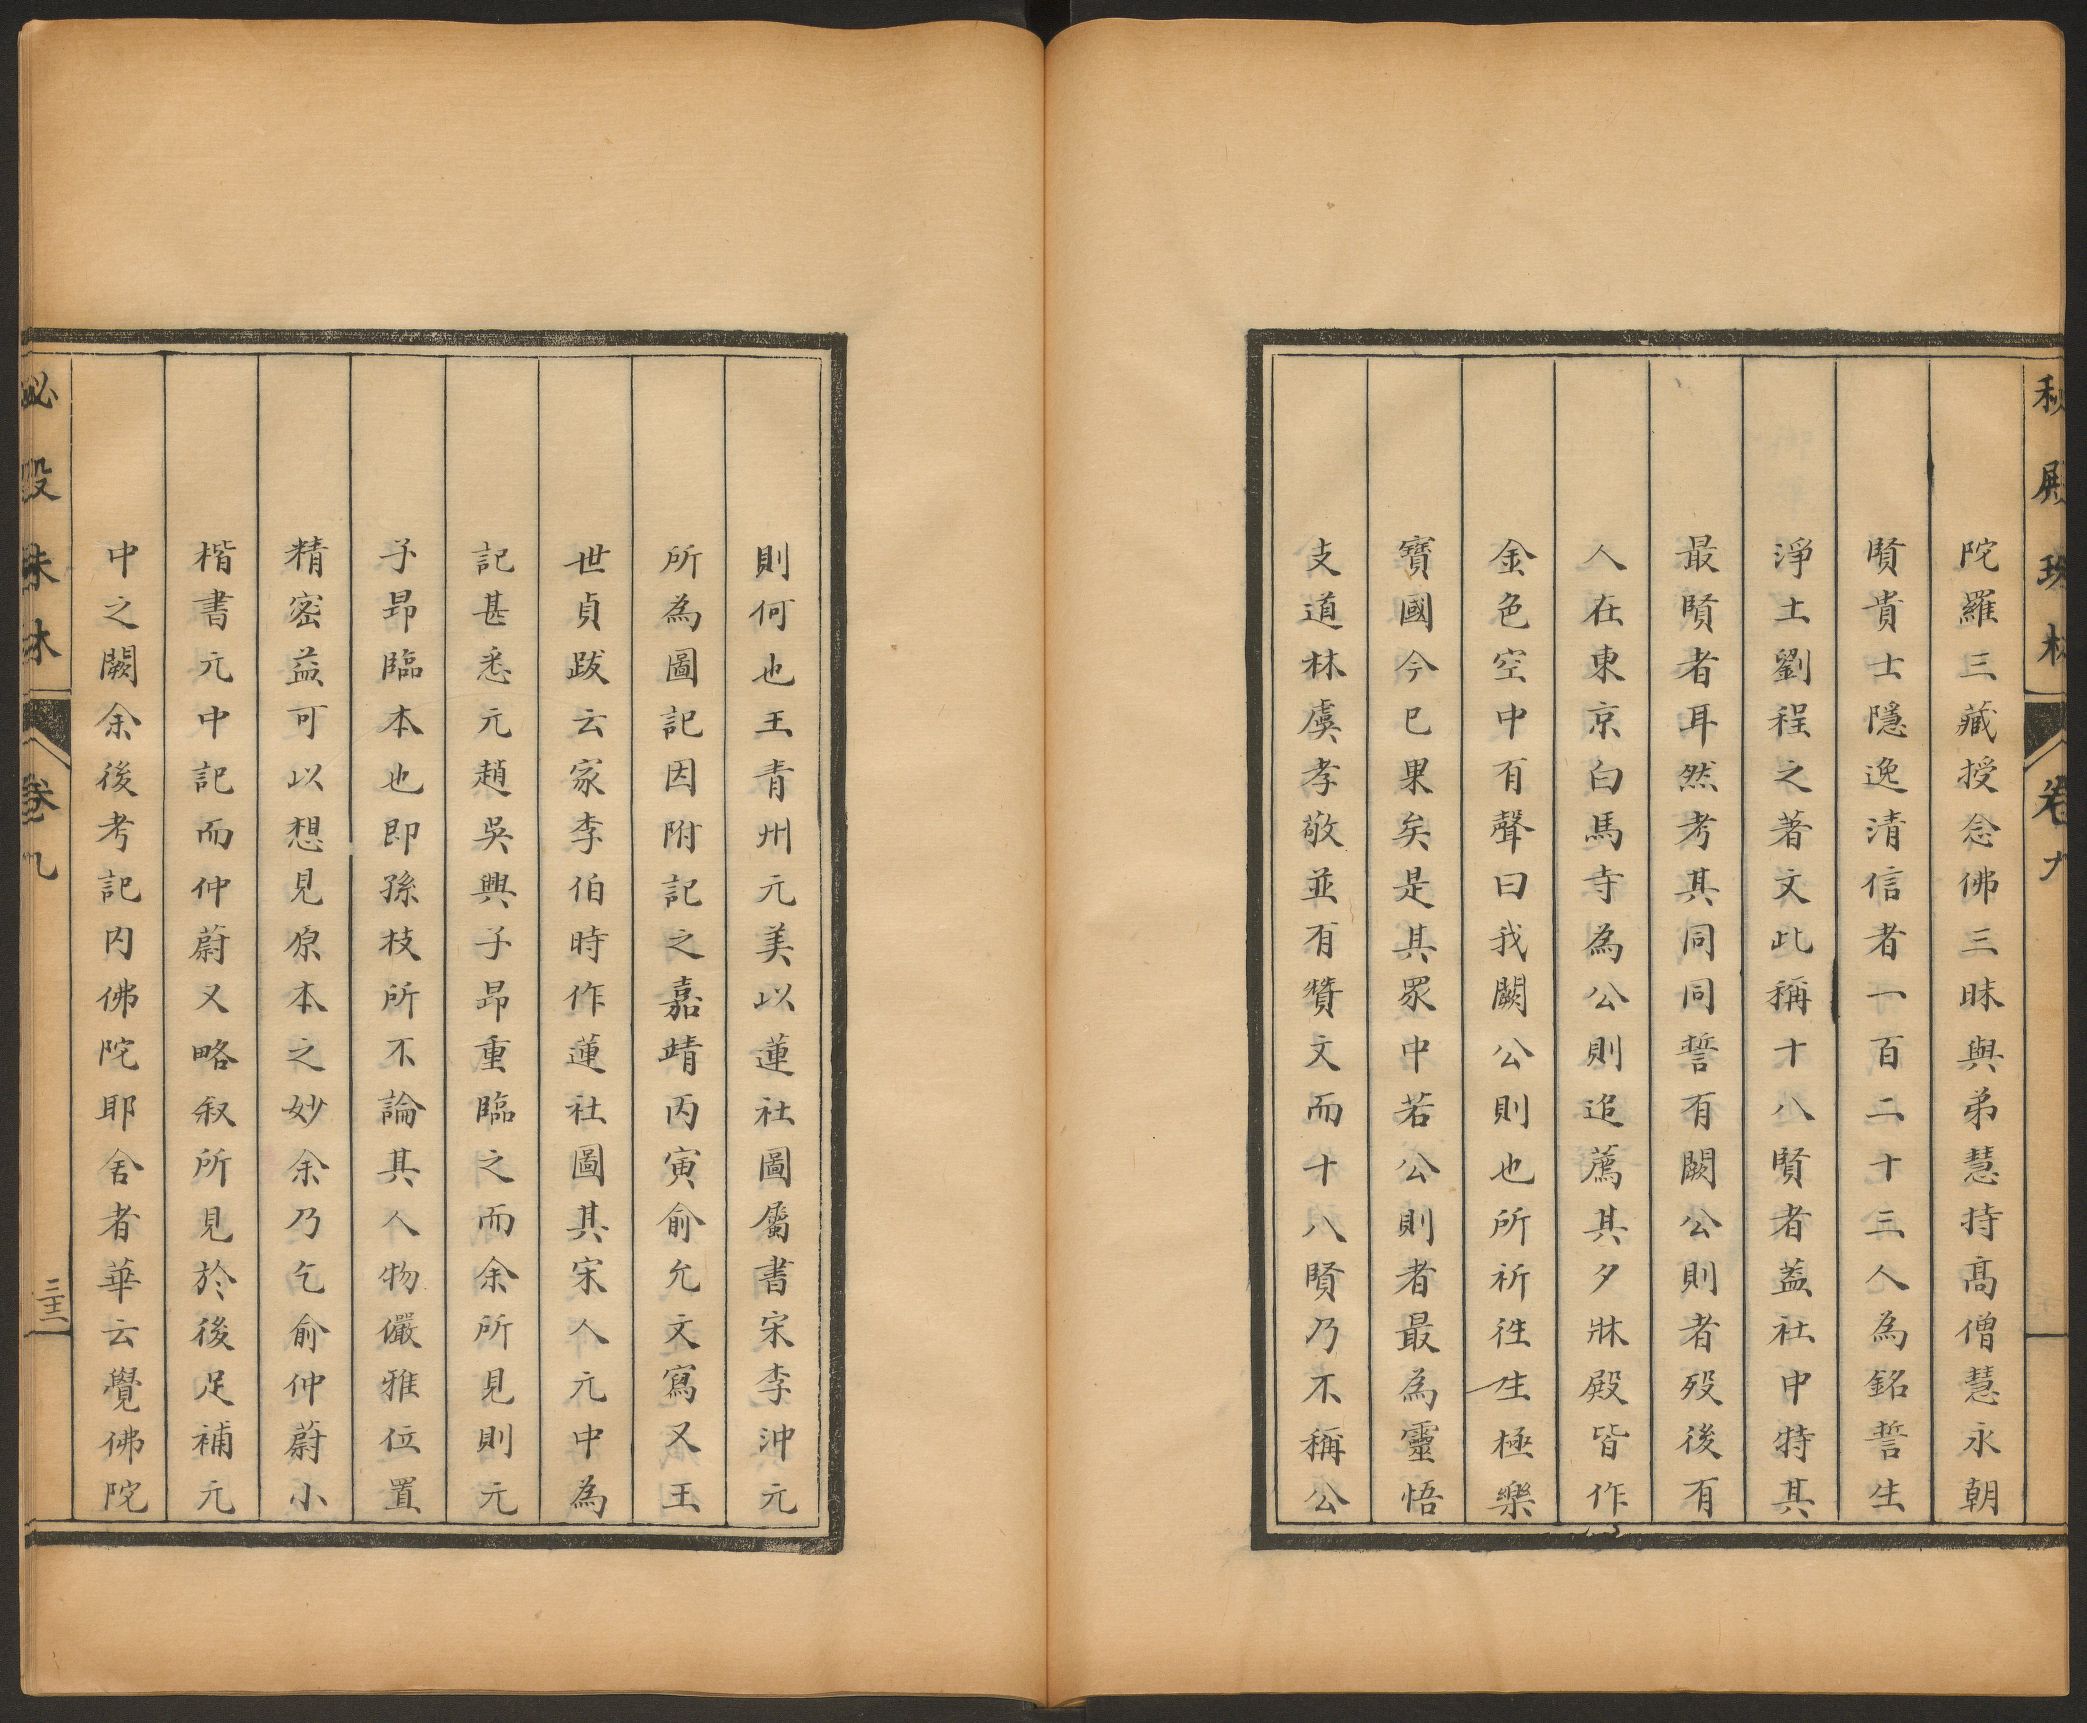 秘殿珠林 卷九
陀羅三藏授念佛三昧與弟慧持高僧慧永朝
賢貴士隱逸清信者一百二十三人為銘誓生
淨土劉程之著文此稱十八賢者蓋社中特其
最賢者耳然考其同同誓有闕公則者歿後有
人在東京白馬寺為公則追薦其夕牀殿皆作
金色空中有聲曰我闕公則也所祈徃生極樂
寶國今已果矣是其眾中若公則者最為靈悟
支道林虞孝敬並有贊文而十八賢乃不稱公
則何也王青州元美以蓮社圖屬書宋李沖元
所為圖記因附記之嘉靖丙寅俞允文寫又王
世貞跋云家李伯時作蓮社圖其宋人元中為
記甚悉元趙吳興子昂重臨之而余所見則元
子昂臨本也即孫枝所不論其人物儼雅位置
精密益可以想見原本之妙余乃乞俞仲蔚小
楷書元中記而仲蔚又略叙所見於後足補元
中之闕余後考記內佛陀耶舍者華云覺佛陀
秘殿珠林 卷九 三十二